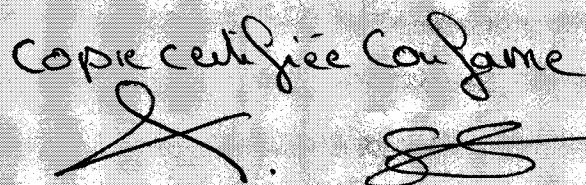 Copie certifiée Conforme